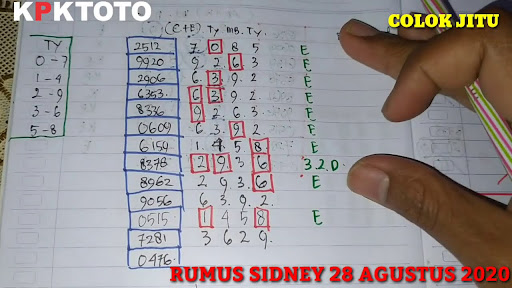 KPKTOTO
COLOK JITU
(C+E). Ty. mb. Ty.
TY
0 - 7
1 - 4
2 - 9
3 - 6
5 - 8
2512 7 0 8 5 E
9920 9. 2. 6 3 E
2906 6. 3. 9. 2 E
6353. 6 3 9. 2 E
8336 9 2. 6. 3 E
0609 6. 3. 9 2 E
6154 1. 4. 5. 8 E
8378 2 9 3 6 3.2.D.
8962 2 9 3. 6 E
9056 6. 3. 9. 2.
0515 1 4 5 8 E
7281 3 6 2 9.
0476.
RUMUS SIDNEY 28 AGUSTUS 2020